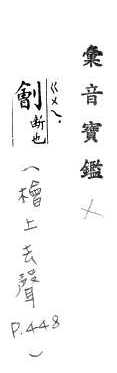 彙音寶鑑 ×
劊 ㄍㄨㄟˋ 斷也
(檜上去聲 P.448)